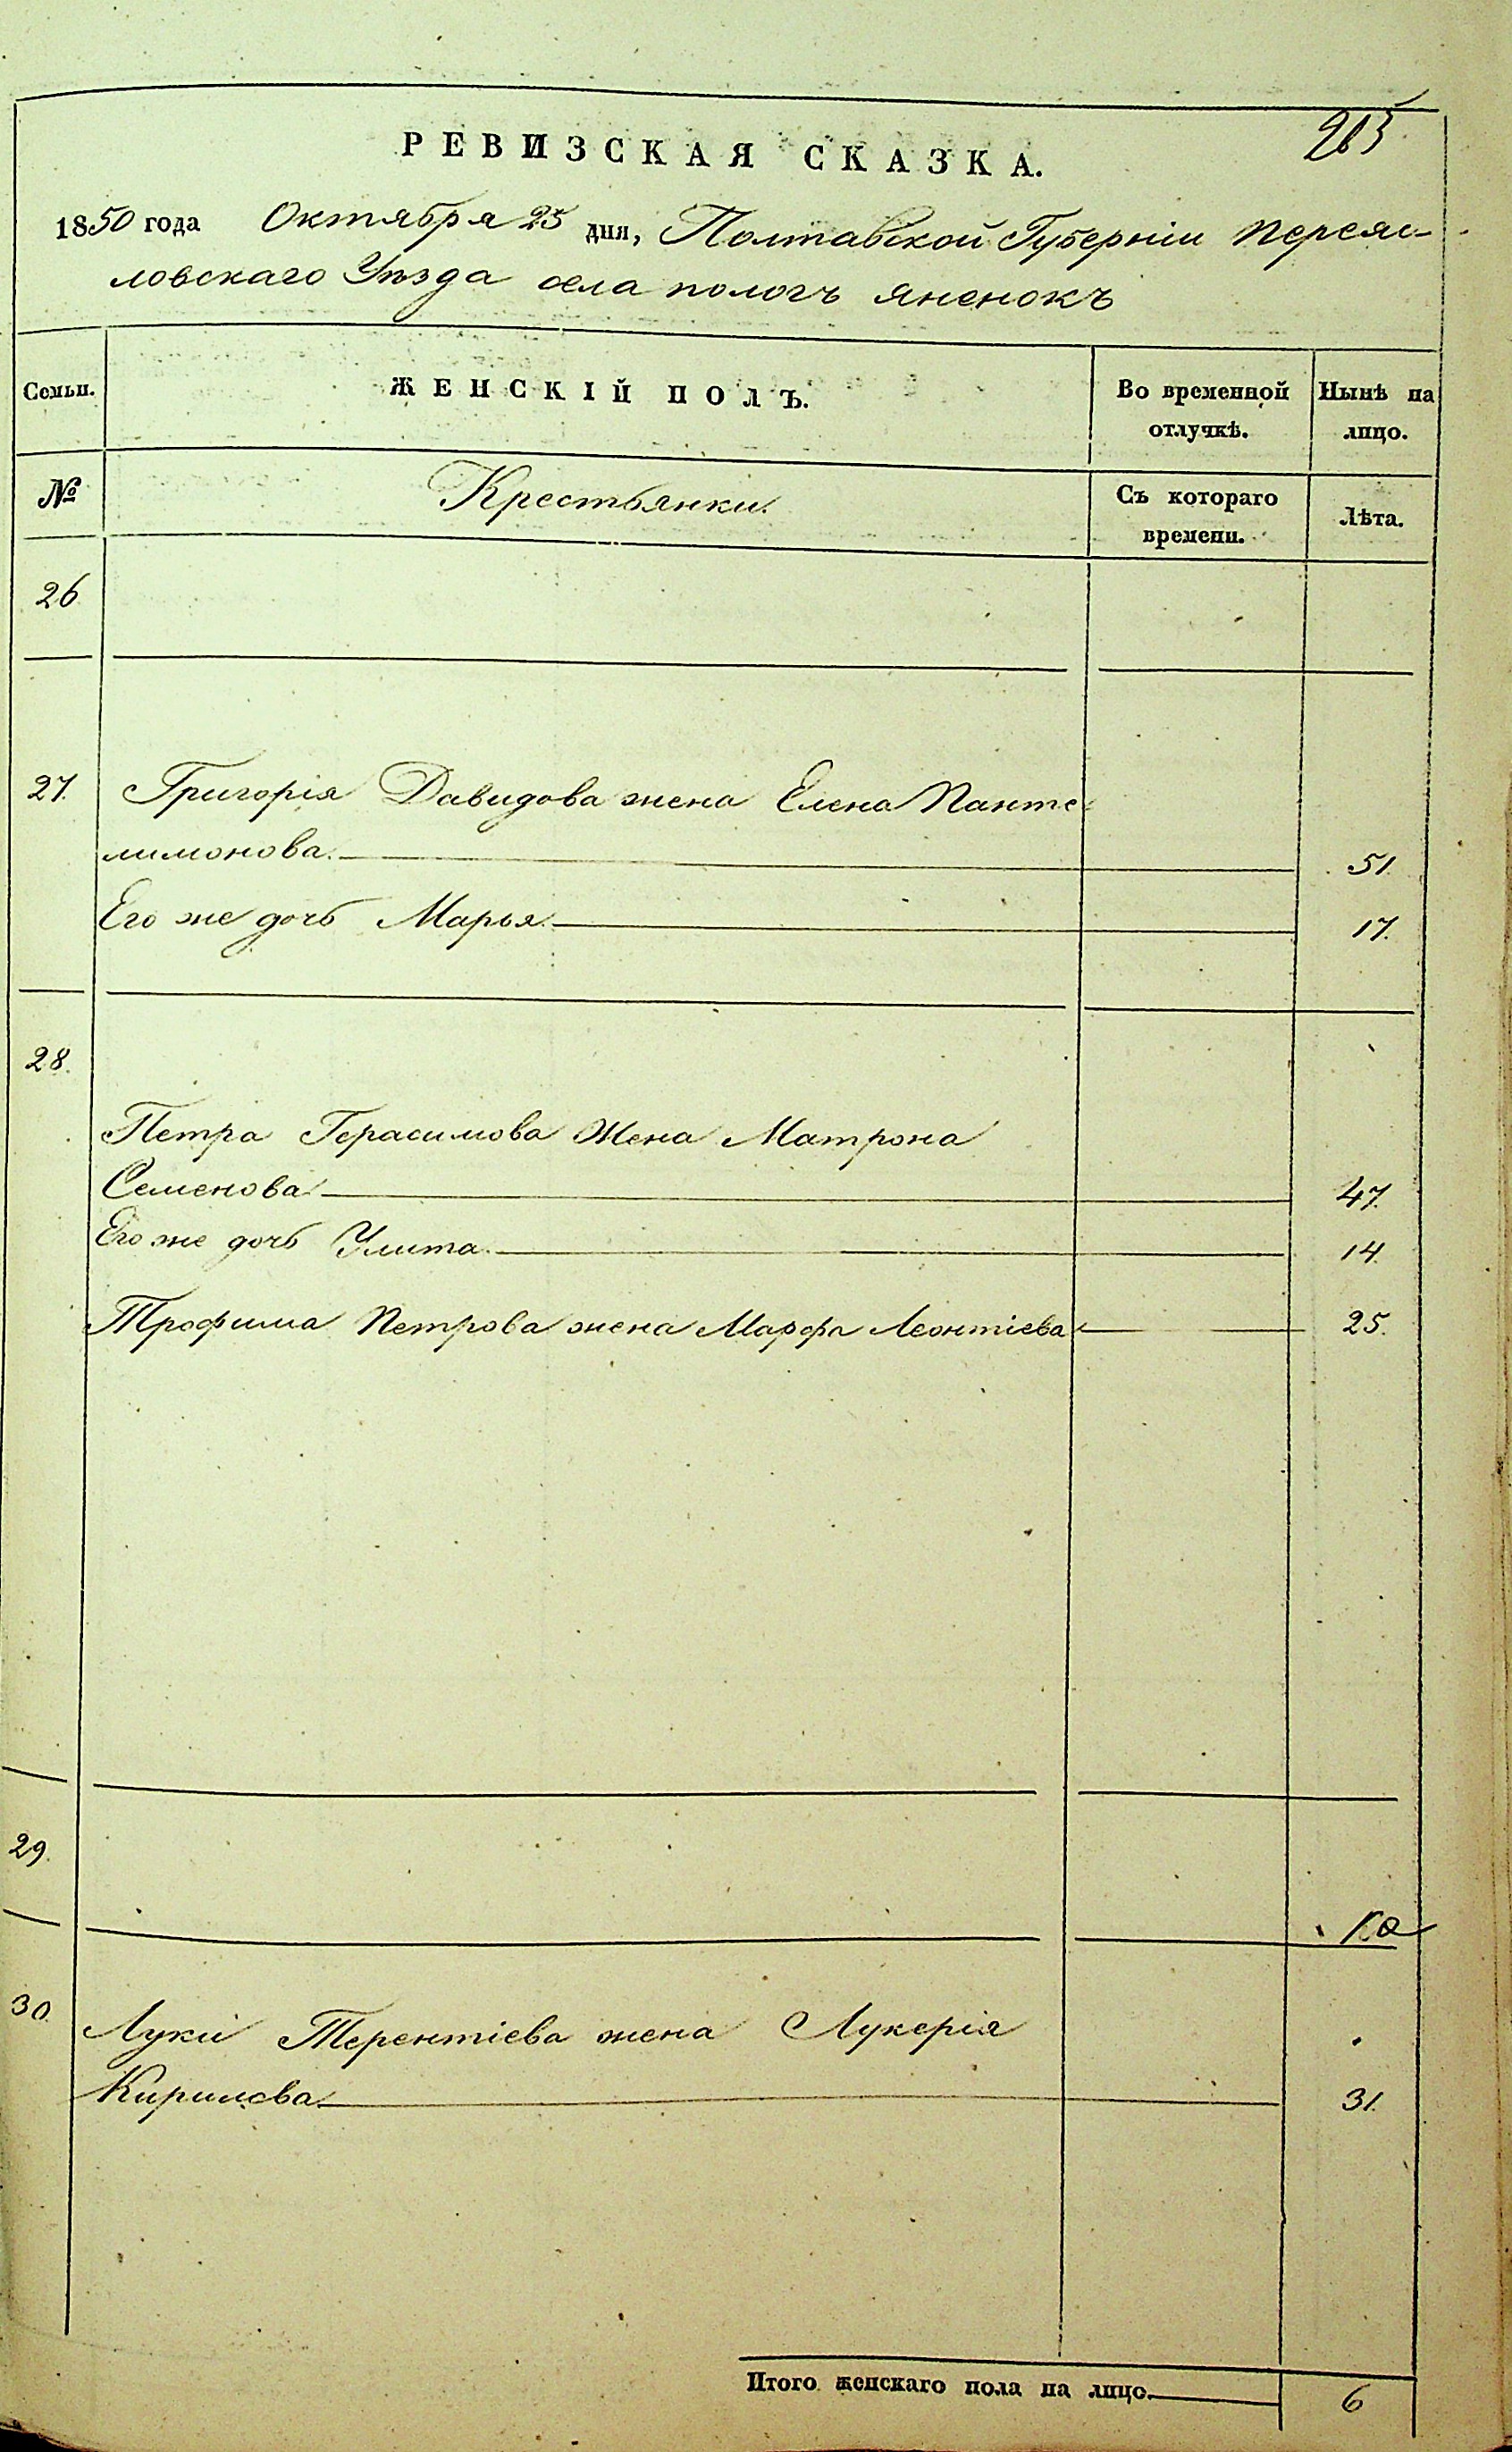 265
РЕВИЗСКАЯ СКАЗКА.
1850 года Октября 25 дня, Полтавской Губерніи Переяс-
ловскаго Уѣзда села пологъ яненокъ
Семьи. ЖЕНСКІЙ ПОЛЪ. Во временной отлучкѣ. Нынѣ на лицо.
№ Крестьянки. Съ котораго времени. Лѣта.
26
27. Григорія Давидова жена Елена Панте
лимонова. 51.
Его же дочь Марья. 17.
28.
Петра Герасимова Жена Матрона
Семенова 47.
Его же дочь Улита. 14.
Трофима Петрова жена Марфа Леонтіева 25.
29.
30. Луки Терентіева жена Лукерія
Кирилова 31.
Итого женскаго пола на лицо. 6